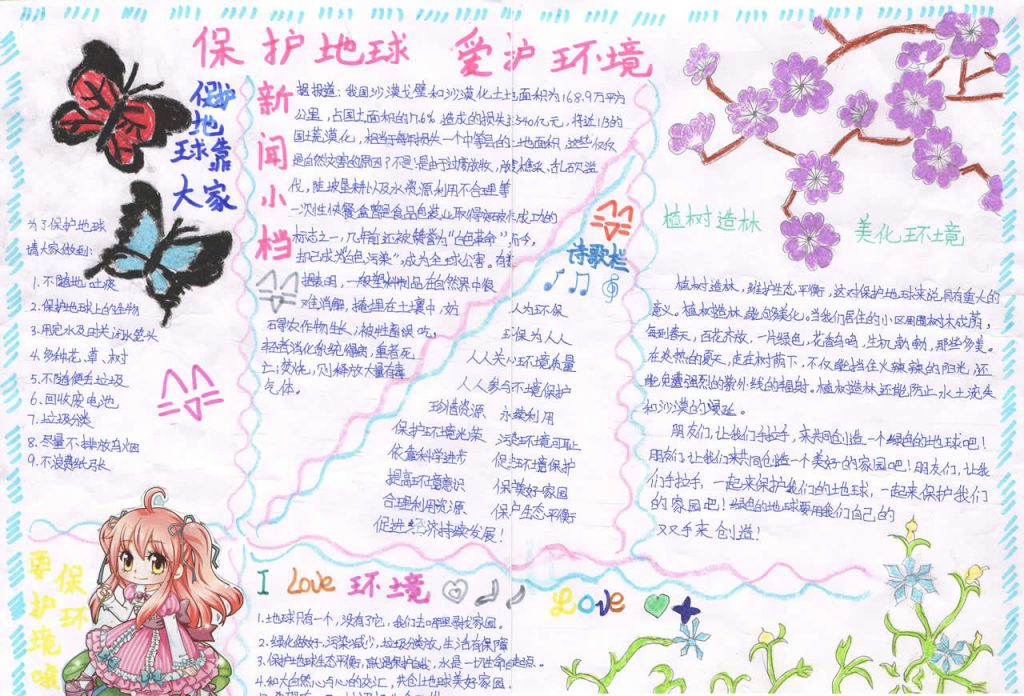 保护地球 爱护环境
保护地球靠大家
为了保护地球
请大家做到:
1.不随地吐痰
2.保护地球上的生物
3.用完水及时关闭水笼头
4.多种花、草、树
5.不随便丢垃圾
6.回收废电池
7.垃圾分类
8.尽量不排放乌烟
9.不浪费纸张
新闻小档
据报道:我国沙漠戈壁和沙漠化土地面积为168.9万平方
公里,占国土面积的17.6%造成的损失540亿元,将近1/3的
国土荒漠化,相当于每年损失一个中等县的土地面积,这些仅仅
是自然灾害的原因?不是!是由于过度放牧、乱砍滥
伐,陡坡垦耕以及水资源利用不合理等
一次性快餐盒曾是食品包装业取得突破性成功的
标志之一,几年前还被赞誉为“白色革命”,而今,
却已成“白色污染”,成为全球公害。
据表明,一般塑料制品在自然界中很
难消解,掩埋在土壤中,妨
碍农作物生长;被牲畜误吃,
轻者消化系统得病,重者死
亡;焚烧,则释放大量有毒
气体。
诗歌栏
人为环保
环保为人人
人人关心环境质量
人人参与环境保护
珍惜资源 永续利用
保护环境光荣 污染环境可耻
依靠科学进步 促进环境保护
提高环境意识 保护美好家园
合理利用资源 保户生态平衡
促进经济持续发展!
植树造林 美化环境
植树造林,维护生态平衡,这对保护地球来说,具有重大的
意义。植树造林,能为多美化。当我们居住的小区周围树木成荫,
每到春天,百花齐放,一片绿色,花香鸟鸣,生机勃勃,那些多美。
在炎热的夏天,走在树荫下,不仅能挡住火辣辣的阳光,还
能免遭强烈的紫外线的辐射。植树造林还能防止水土流失
和沙漠的漫延。
朋友们,让我们手拉手,来共同创造一个绿色的地球吧!
朋友们,让我们来共同创造一个美好的家园吧!朋友们,让我
们手拉手,一起来保护我们的地球,一起来保护我们
的家园吧!绿色的地球要用我们自己的
双手来创造!
要保护环境哦
I Love 环境
Love
1.地球只有一个,没有了它,我们去哪里寻找家园。
2.绿化做好,污染减少,垃圾分类放,生活有保障
3.保护地球生态平衡,就是保护自我,水是一切生命的起点。
4.和大自然心与心的交汇,共创地球美好家园。